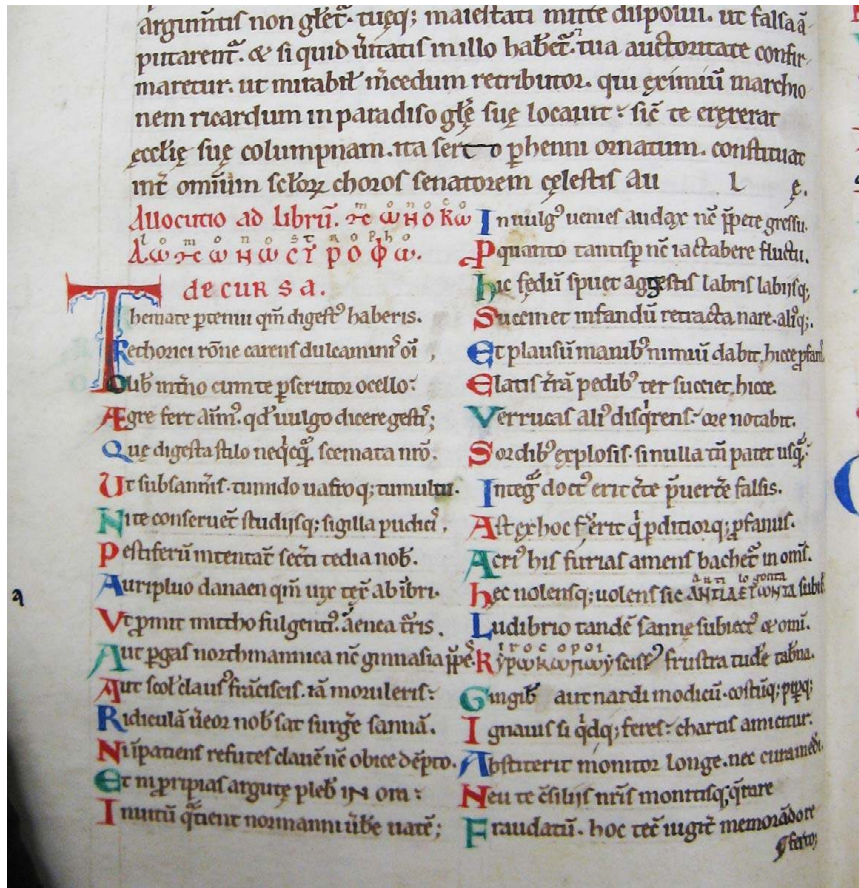 argum̄tis non gl̄et᷑. tuęq; maiestati mitte disposui. ut falsa ā-
putarent᷑. & si quid ūitatis in illo hab&᷑. tua auctoritate confir-
mar&ur. ut mirabil̄ m̄cedum retributor. qui eximiū marchio
nem ricardum in paradiso glę̄ suę locauit: sic̄ te crexerat
ęcclię suę columpnam. ita ser o p̱henni ornatum. constituat
int̄ omīum sc̄loꝝ choros senatorem cęlestis au l ę.
Allocutio ad librū.
decursa.
Themate ptenui qm̄ digest᷒ haberis.
Rethorici rōne carens dulcamini᷒ oī,
Dulib᷒ int̄no cum te pscrutor ocello:
Ægre fert aīm᷒. qd᷒ uulgo dicere gestis;
Quę digesta stilo neq̇cq̄ꝫ scemata nrō.
Ut subsannis. tumido uafroq; tumultu.
Nite conseruet̄ studiisq; sigilla pudici᷒.
Pestiferū intentat̄ secti tedia nob᷒.
Auripluo danaen qm̄ uix tec̄ ab ibri.
Vt pmit mittho fulgenti᷒. aenea t̄ris.
Aut pgas northmannica nc̄ gimnasia p̄pe᷒.
Aut scol̄ claus᷒ frāciscis. iā moruleris:
Ridiculā ūeor nob᷒ sat surḡe sannā.
Nī patiens refutes clauē nc̄ obice dēpto.
Et ni ppias argutę pleb᷒ in ora:
Inuitū q̄tient normanni ūbe uatē;
In uulg᷒ uenies audax nc̄ p̄pete gressu.
Pquanto tantisp nc̄ iactabere fluctu.
Hic fędū spuet aggestis labris labiisq;
Succinet infandū retracta nare. aliq;.
Et plausū manib᷒ nimiū dabit, hicce
Elatis t̄rā pedib᷒ ter succiet, hicce.
Verrucas ali᷒ disq̇rens: ore notabit.
Sordib᷒ explosis. si nulla tn̄ patet usq̄ꝫ:
Integ᷒ doct᷒ erit c̄te p̄uert̄e falsis.
Ast ex hoc f᷒erit q̇ pditiorq; pfanus.
Acri᷒ his furias amens bachet᷑ in omīs.
Hęc nolensq; uolens sic
Ludibrio tandē sannę subiect᷒ & omī.
frustra tudē tab̄na.
Gingib᷒ aut nardi modicū. costūq; pipq;
Ignauis si q̇dq; feres: chartis amicitur.
Abstiterit monitor longe. nec cura medi.
Neu te c̄silijs nr̄is monitisq, q̄rare
Fraudatū. hoc tec̄ iugit̄ memorādo re
ferto;